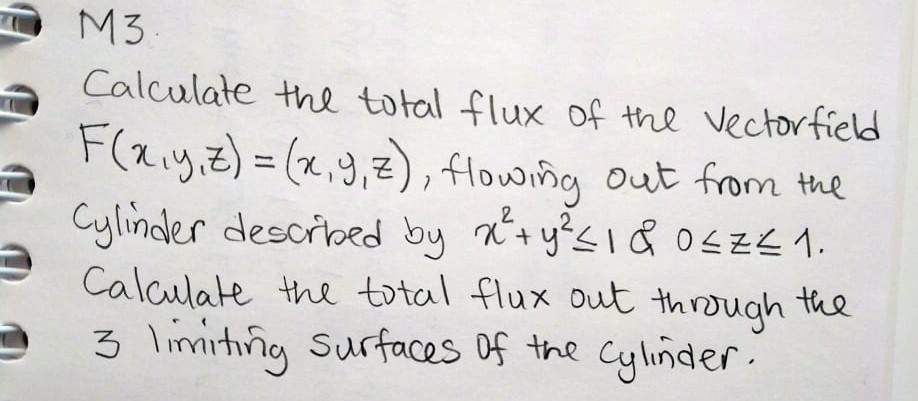 M3.
Calculate the total flux of the vectorfield
F(x,y,z) = (x,y,z), flowing out from the
Cylinder described by x²+y²≤1 & 0≤z≤1.
Calculate the total flux out through the
3 limiting surfaces of the cylinder.